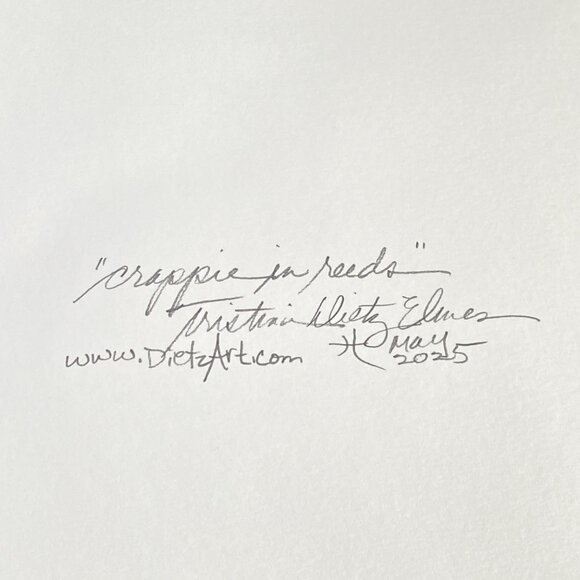 "crappie in reeds"
Tristina Dietz Elmes
www.DietzArt.com )-( May
2025